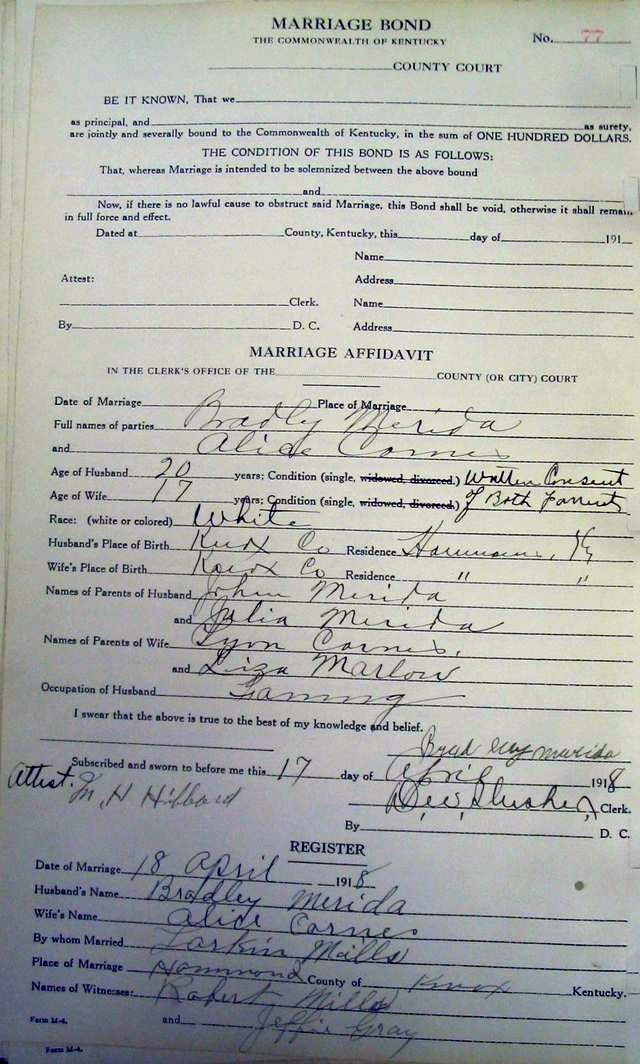 MARRIAGE BOND
THE COMMONWEALTH OF KENTUCKY
No. 77
COUNTY COURT
BE IT KNOWN, That we
as principal, and as surety,
are jointly and severally bound to the Commonwealth of Kentucky, in the sum of ONE HUNDRED DOLLARS.
THE CONDITION OF THIS BOND IS AS FOLLOWS:
That, whereas Marriage is intended to be solemnized between the above bound
and
Now, if there is no lawful cause to obstruct said Marriage, this Bond shall be void, otherwise it shall remain
in full force and effect.
Dated at County, Kentucky, this day of 191
Name
Attest: Address
Clerk. Name
By D. C. Address
MARRIAGE AFFIDAVIT
IN THE CLERK'S OFFICE OF THE COUNTY (OR CITY) COURT
Date of Marriage Place of Marriage
Full names of parties Bradly Merida
and Alice Carnes
Age of Husband 20 years; Condition (single, widowed, divorced.) Written Consent
Age of Wife 17 years; Condition (single, widowed, divorced.) of Both Parrents
Race: (white or colored) White
Husband's Place of Birth Knox Co Residence Ky
Wife's Place of Birth Knox Co Residence " "
Names of Parents of Husband John Merida
and Julia Merida
Names of Parents of Wife Carnes,
and Liza Marlow
Occupation of Husband Farming
I swear that the above is true to the best of my knowledge and belief.
Brad Merida
Subscribed and sworn to before me this 17 day of April 1918
Attest. M. H Hibbard Clerk.
By D. C.
REGISTER
Date of Marriage 18 April 1918
Husband's Name Bradley Merida
Wife's Name Alice Carnes
By whom Married Larkin Mills
Place of Marriage Hammond County of Knox Kentucky.
Names of Witnesses: Robert Mills
Form M-4. and Jeffie Gray
Form M-4.